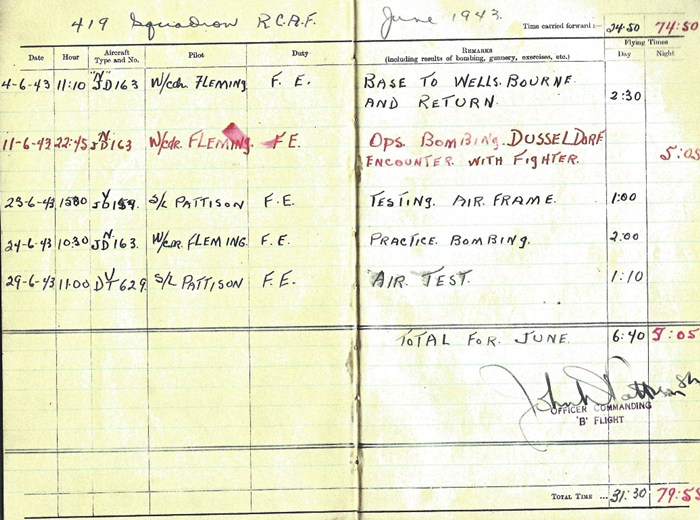 419 Squadron R.C.A.F. June 1943. Time carried forward :— 24:50 74:50
Date Hour Aircraft Type and No. Pilot Duty Remarks (including results of bombing, gunnery, exercises, etc.) Flying Times Day Night
4-6-43 11:10 "N" JD163 W/cdr. FLEMING F. E. BASE TO WELLS.BOURNE
AND RETURN. 2:30
11-6-43 22:45 N JD163 W/cdr. FLEMING. F E. OPS. BOMBING. DUSSELDORF
ENCOUNTER WITH FIGHTER. 5:05
23-6-43 1500 V S/L PATTISON F.E. TESTING. AIR. FRAME. 1:00
24-6-43 10:30 N JD163. W/CDR. FLEMING. F.E. PRACTICE BOMBING. 2:00
29-6-43 11:00 V DT629. S/L PATTISON F. E. AIR. TEST. 1:10
TOTAL FOR JUNE. 6:40 5:05
OFFICER COMMANDING
'B' FLIGHT
TOTAL TIME ... 31:30 79:55